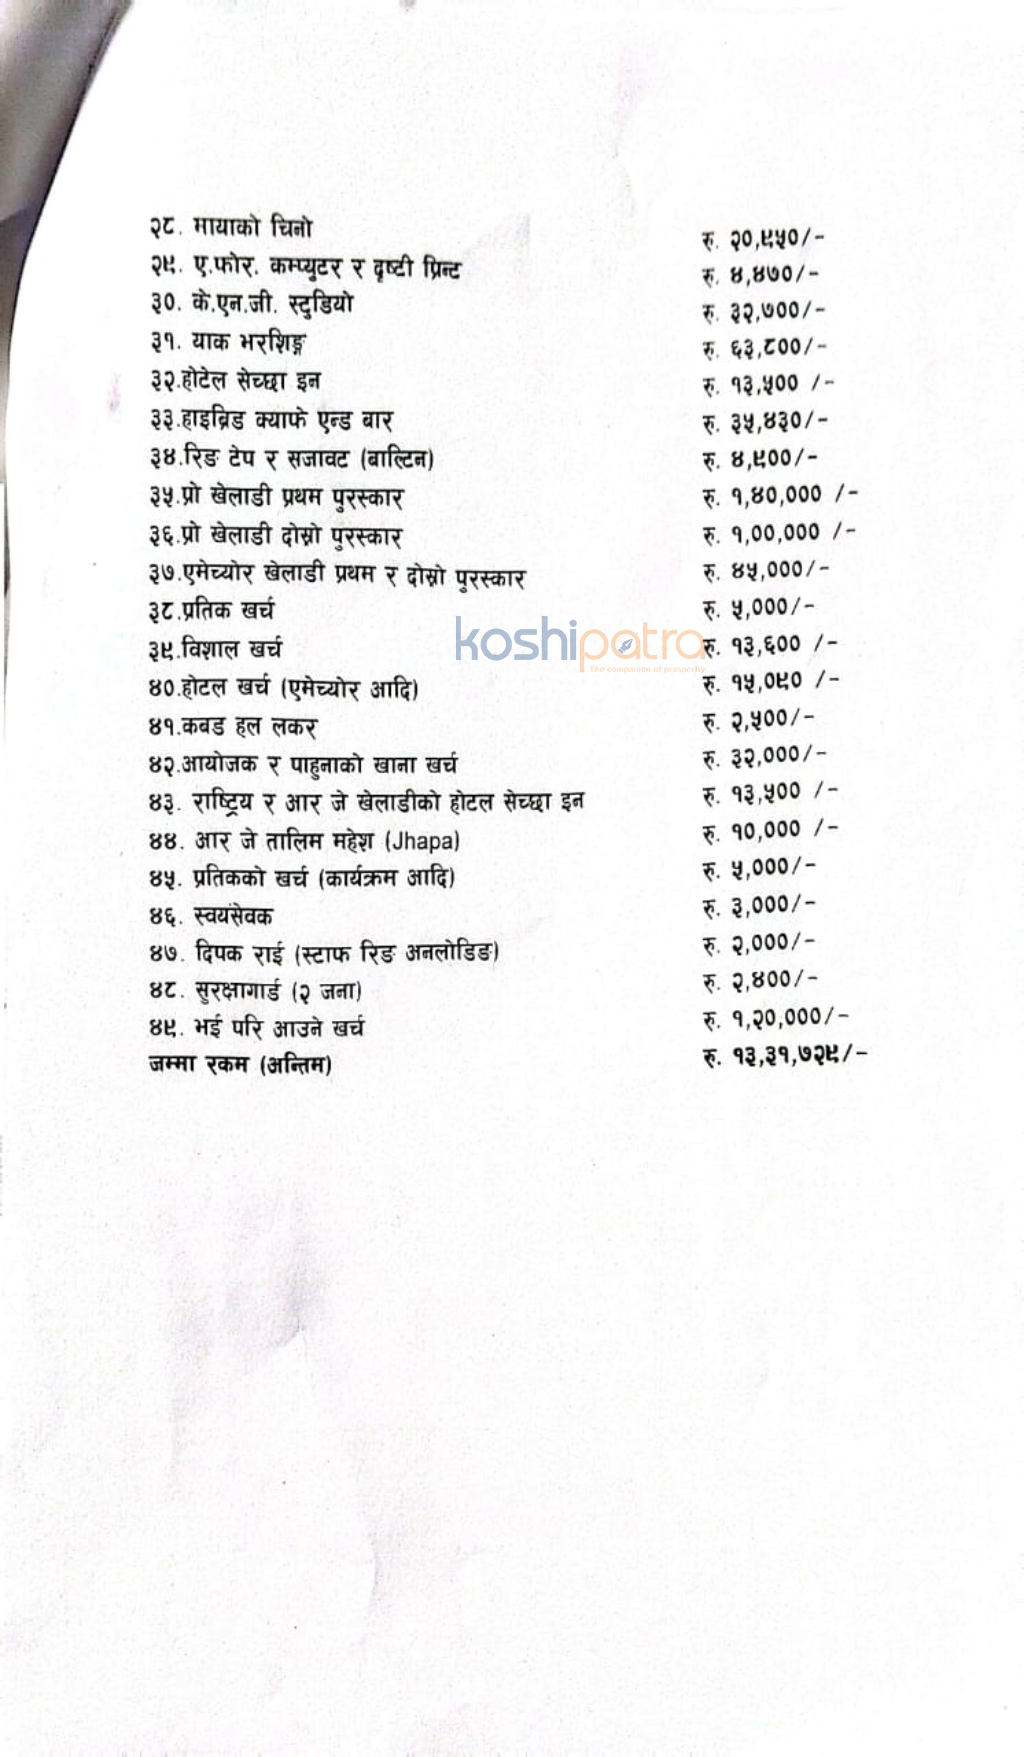 २८. मायाको चिनो रु. २०,९५०/-
२९. ए.फोर. कम्प्युटर र दृष्टी प्रिन्ट रु. ४,४७०/-
३०. के.एन.जी. स्टुडियो रु. ३२,७००/-
३१. याक भरशिङ्ग रु. ६३,८००/-
३२.होटेल सेच्छा इन रु. १३,५०० /-
३३.हाइब्रिड क्याफे एन्ड बार रु. ३५,४३०/-
३४.रिङ टेप र सजावट (बाल्टिन) रु. ४,९००/-
३५.प्रो खेलाडी प्रथम पुरस्कार रु. १,४०,००० /-
३६.प्रो खेलाडी दोस्रो पुरस्कार रु. १,००,००० /-
३७.एमेच्योर खेलाडी प्रथम र दोस्रो पुरस्कार रु. ४५,०००/-
३८.प्रतिक खर्च रु. ५,०००/-
३९.विशाल खर्च रु. १३,६०० /-
koshipatra
The companion of prosperity
४०.होटल खर्च (एमेच्योर आदि) रु. १५,०९० /-
४१.कबड हल लकर रु. २,५००/-
४२.आयोजक र पाहुनाको खाना खर्च रु. ३२,०००/-
४३. राष्ट्रिय र आर जे खेलाडीको होटल सेच्छा इन रु. १३,५०० /-
४४. आर जे तालिम महेश (Jhapa) रु. १०,००० /-
४५. प्रतिकको खर्च (कार्यक्रम आदि) रु. ५,०००/-
४६. स्वयंसेवक रु. ३,०००/-
४७. दिपक राई (स्टाफ रिङ अनलोडिङ) रु. २,०००/-
४८. सुरक्षागार्ड (२ जना) रु. २,४००/-
४९. भई परि आउने खर्च रु. १,२०,०००/-
जम्मा रकम (अन्तिम) रु. १३,३१,७२९/-